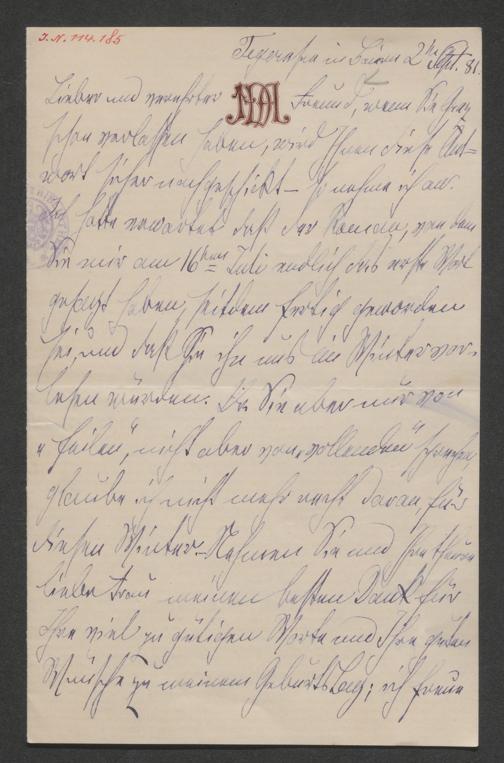 I. N. 114.185
Tegernsee in Baiern 2 Sept. 81.
Lieber und verehrter Freund, wenn Sie
schon verlassen haben, wird Ihnen diese Ant-
wort sicher nachgeschickt – so nehme ich an.
Ich hatte erwartet daß der Roman, von dem
Sie mir am 16ten Juli endlich das erste Wort
gesagt haben, seitdem fertig geworden
sei, und daß Sie ihn uns im Winter vor-
lesen würden. Da Sie aber nur von
"feilen", nicht aber von "vollenden" sprechen
glaube ich nicht mehr recht daran, für
diesen Winter. Nehmen Sie und Ihre theure
liebe Frau meinen besten Dank für
Ihre viel zu gütigen Worte und Ihre guten
Wünsche zu meinem Geburtstag; ich freue